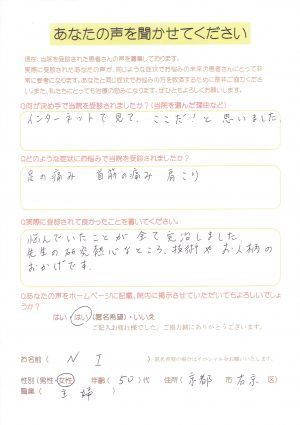 あなたの声を聞かせてください
現在、当院を受診された患者さんの声を募集しております。
実際に受診されたあなたの声が、同じような症状でお悩みの未来の患者さんにとって非
常に参考になります。あなたと同じ症状でお悩みの方を救済するために是非ご協力くださ
い。また、私たちにとっても治療の励みになります。ぜひともよろしくお願いします。
Q何が決め手で当院を受診されましたか?(当院を選んだ理由など)
インターネットで見て、ここだ!と思いました。
Qどのような症状にお悩みで当院を受診されましたか?
足の痛み 首筋の痛み 肩こり
Q実際に受診されて良かったことを書いてください。
悩んでいたことが全て完治しました。
先生の研究熱心なところ、技術やお人柄の
おかげです。
Qあなたの声をホームページに記載、院内に掲示させていただいてもよろしいでしょう
か?
はい・はい(匿名希望)・いいえ
ご記入お疲れ様でした。ご協力誠にありがとうございます。
お名前( N I )匿名希望の場合はイニシャルをお願いいたします。
性別(男性・女性) 年齢(50)代 住所(京都 市 右京 区)
職業( 主婦 )